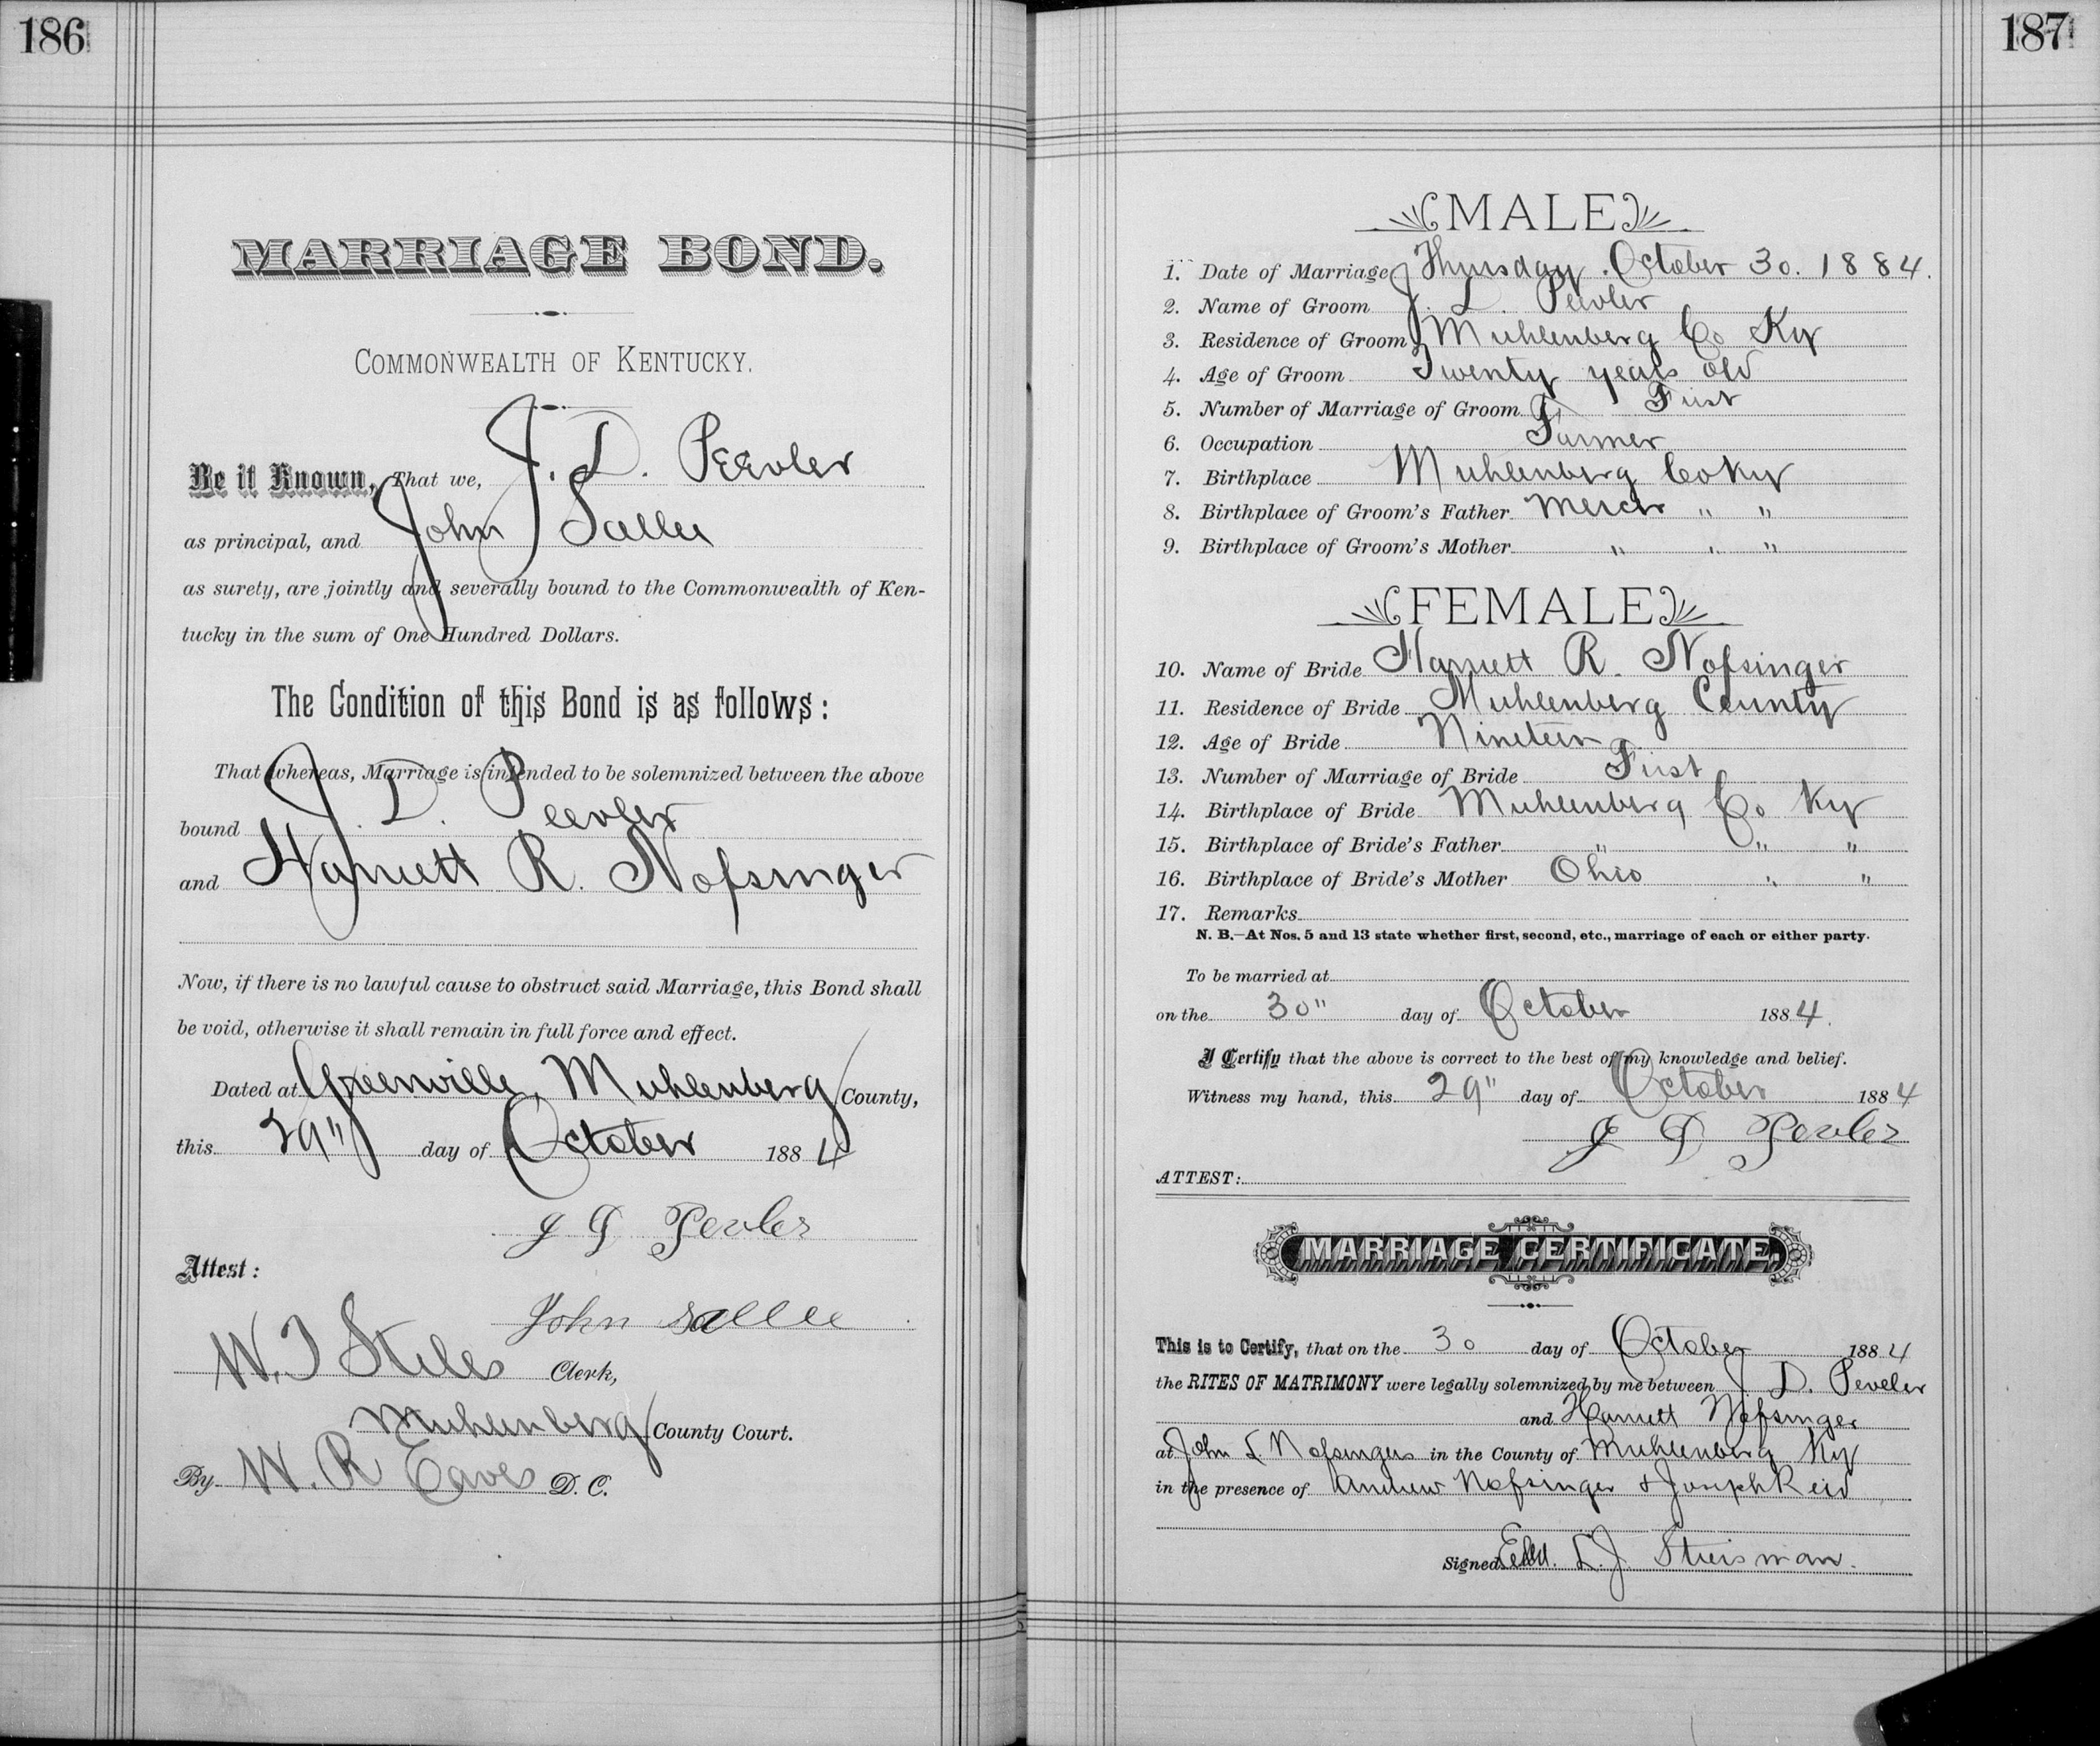 186
MARRIAGE BOND.
COMMONWEALTH OF KENTUCKY.
Be it Known, That we, J. D. Peevler
as principal, and John Sallee
as surety, are jointly and severally bound to the Commonwealth of Ken-
tucky in the sum of One Hundred Dollars.
The Condition of this Bond is as follows:
That whereas, Marriage is intended to be solemnized between the above
bound J. D. Peevler
and Harriett R. Nofsinger
Now, if there is no lawful cause to obstruct said Marriage, this Bond shall
be void, otherwise it shall remain in full force and effect.
Dated at Greenville, Muhlenberg County,
this 29" day of October 1884
J D Pevler
Attest:
John Sallee
W. T Stiles Clerk,
Muhlenberg County Court.
By W. R Eaves D. C.
187
MALE
1. Date of Marriage Thursday October 30. 1884.
2. Name of Groom J. D. Peevler
3. Residence of Groom Muhlenberg Co Ky
4. Age of Groom Twenty years old
5. Number of Marriage of Groom First
6. Occupation Farmer
7. Birthplace Muhlenberg Co Ky
8. Birthplace of Groom's Father Mercer " "
9. Birthplace of Groom's Mother " " "
FEMALE
10. Name of Bride Harriett R. Nofsinger
11. Residence of Bride Muhlenberg County
12. Age of Bride Nineteen
13. Number of Marriage of Bride First
14. Birthplace of Bride Muhlenberg Co Ky
15. Birthplace of Bride's Father " " "
16. Birthplace of Bride's Mother Ohio " "
17. Remarks
N. B.—At Nos. 5 and 13 state whether first, second, etc., marriage of each or either party.
To be married at
on the 30" day of October 1884.
I Certify that the above is correct to the best of my knowledge and belief.
Witness my hand, this 29" day of October 1884
J D Pevler
ATTEST:
MARRIAGE CERTIFICATE.
This is to Certify, that on the 30 day of October 1884
the RITES OF MATRIMONY were legally solemnized by me between J. D. Peveler
and Harriett Nofsinger
at John S. Nofsingers in the County of Muhlenberg Ky
in the presence of Andrew Nofsinger & Joseph Reid
Signed L. J. Stirsman.